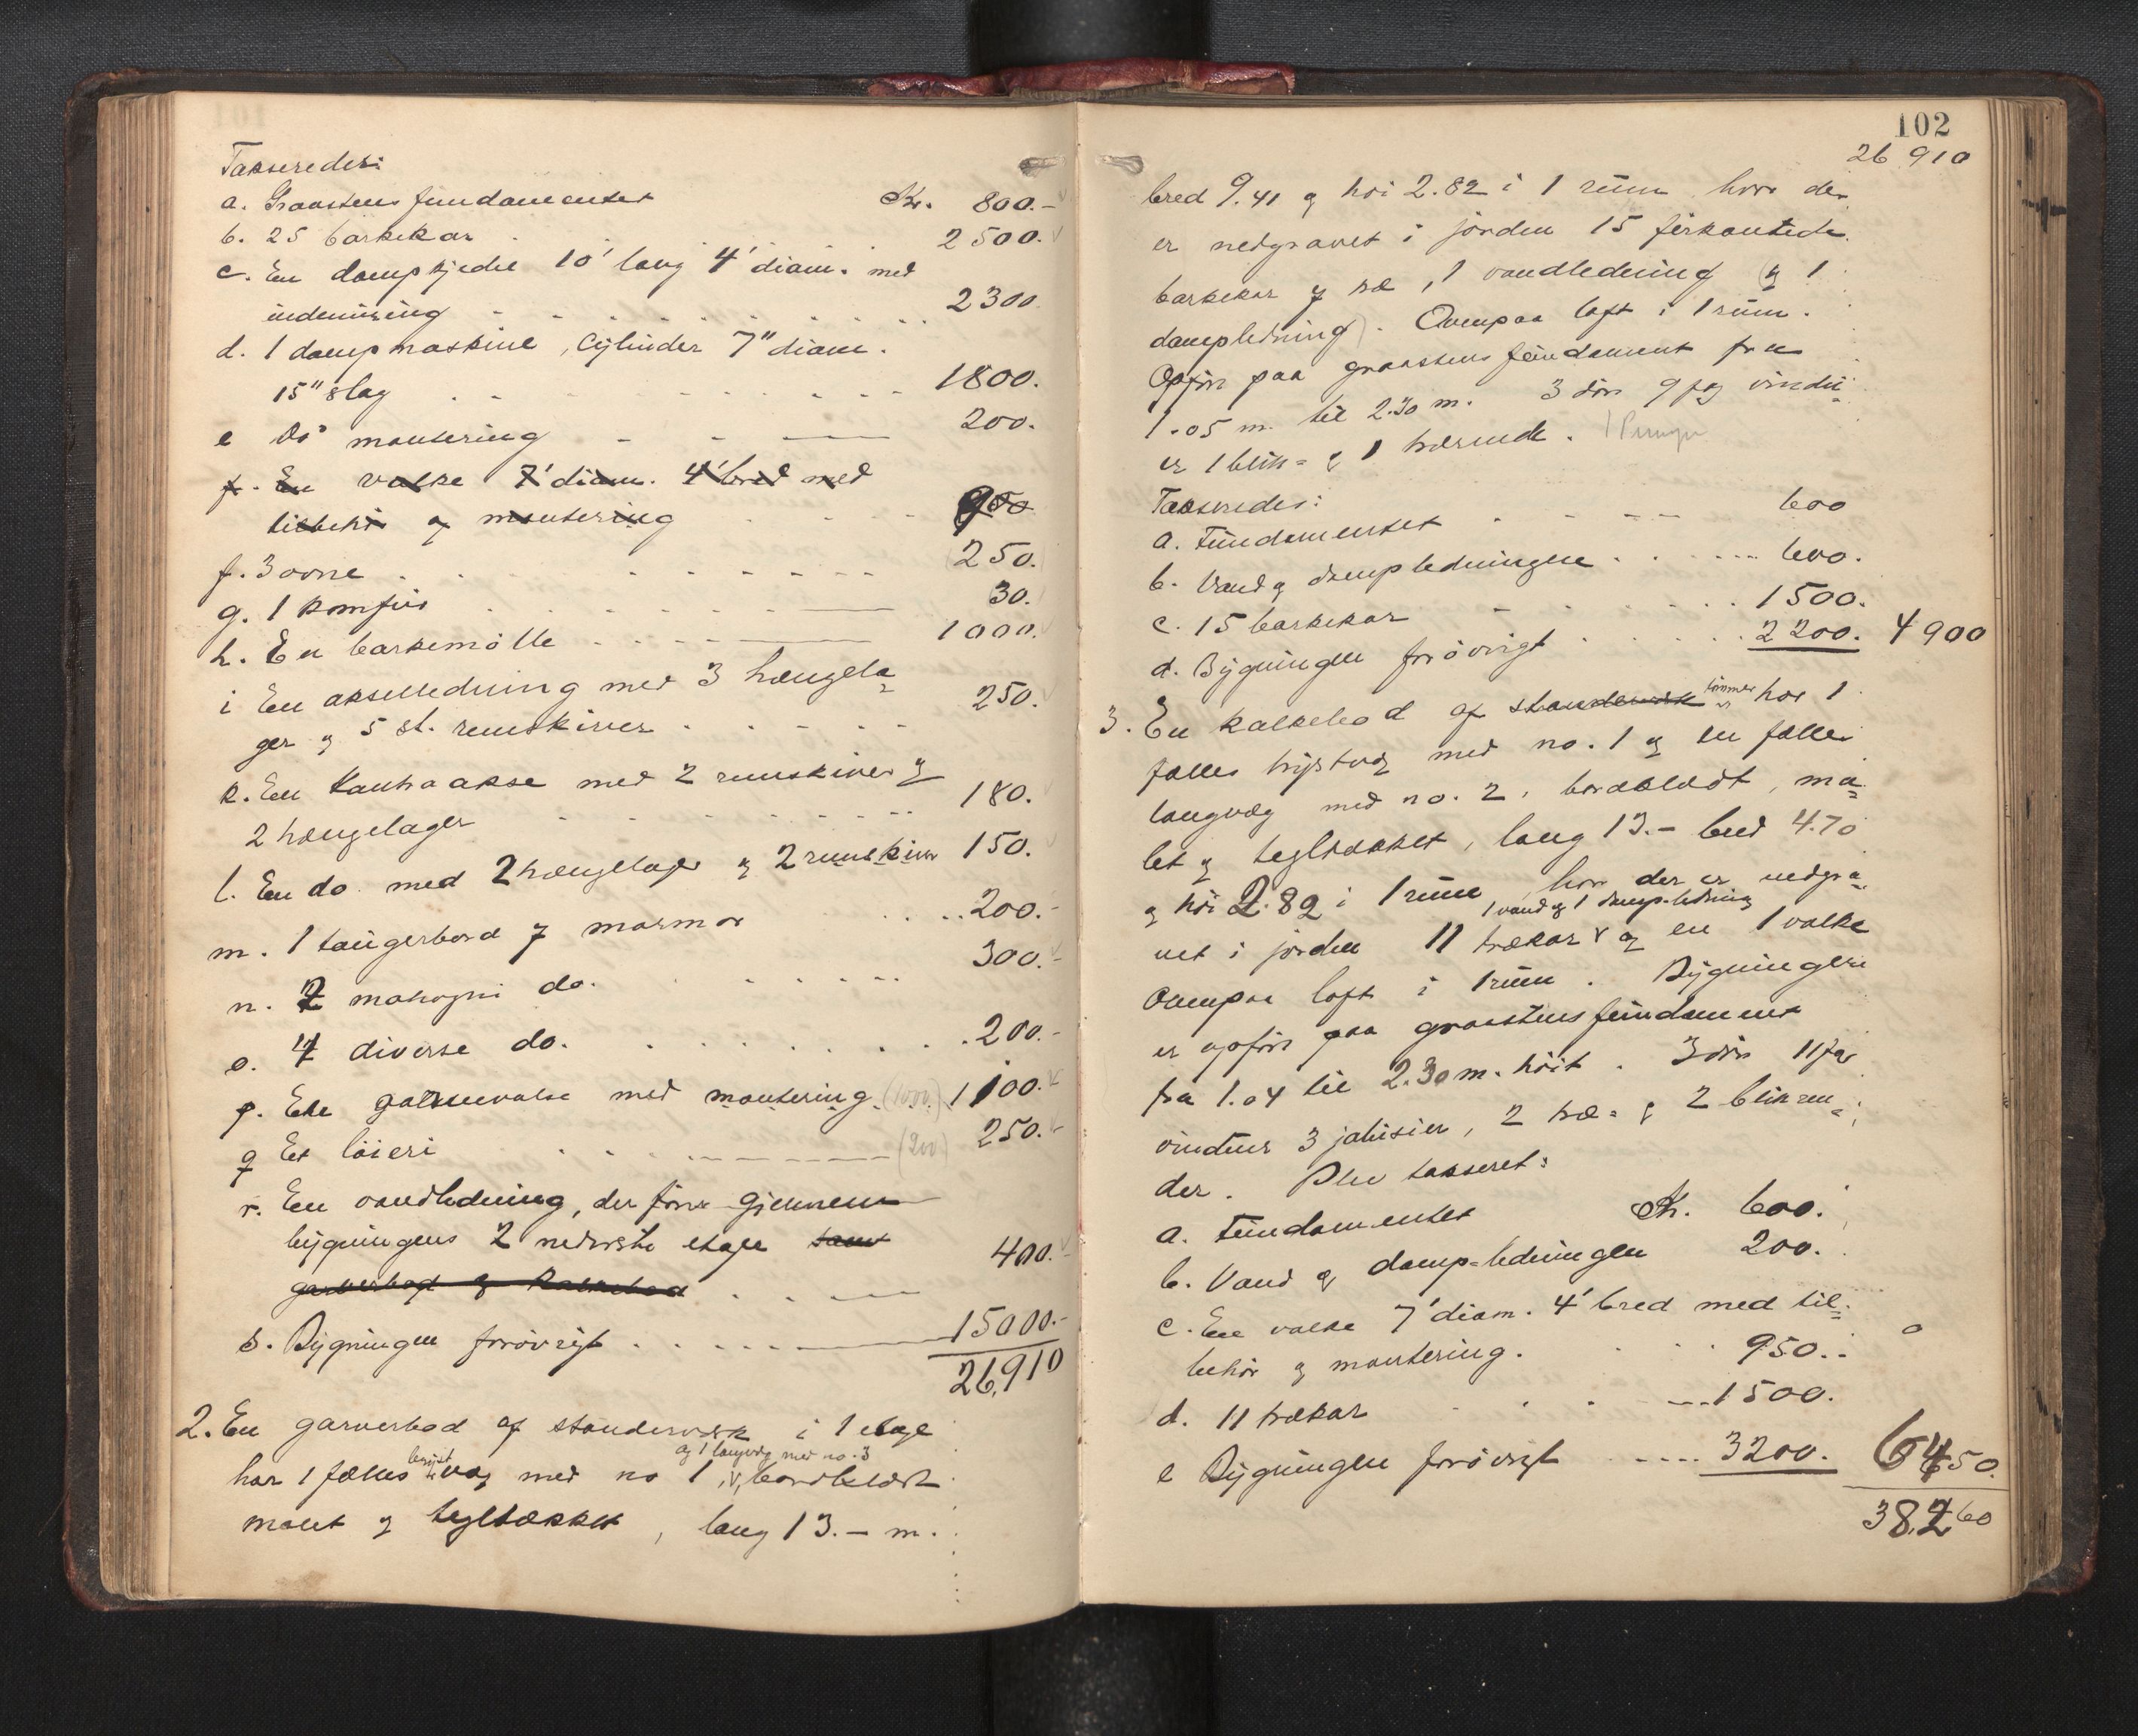 Takseredes:
a. Graastensfundamentet Kr. 800.-
b. 25 barkekar 2500.
c. En dampkjedel 10' lang 4' diam. med
indmuring 2300
d. 1 dampmaskine, Cylinder 7" diam.
15" slag 1800.
e Do montering 200.
f. En valke 7' diam. 4' bred med
tilbehør og montering 950
f. 3 ovne 250.
g. 1 komfur 30.
h. En barkemølle 1000.
i En akselledning med 3 hængela-
ger og 5 st. remskiver 250.
k. En tauhaakse med 2 remskiver og
2 hængelager 180.
l. En do med 2 hængelager og 2 remskiver 150.
m. 1 taugerbord af marmor 200.-
n. 2 mahogni do. 300.-
o. 4 diverse do. 200.-
p. En garnuvalse med montering (1000) 1100.
q Et løieri (200) 250.
r. En vandledning, der fører gjennem
bygningens 2 nederste etage samt
garverbod og kalkebod 400.-
s. Bygningen forøvrigt 15000.-
26,910
2. En garverbod af standerværk i 1 etage
og 1 langvæg med no. 3
har 1 fælles brystvæg med no 1, bordklædt
malet og tegltækket, lang 13.- m.
102
26 910
bred 9.41 og høi 2.82 i 1 rum hvor der
er nedgravet i jorden 15 firkantede
barkekar af træ, 1 vandledning (og 1
dampledning). Ovenpaa loft i 1 rum.
Opført paa graastensfundament fra
1.05 m. til 2.30 m. 3 dør 9 fag vindu-
er 1 blik- og 1 trærende.
Takseredes:
a. Fundamentet 600
b. Vand og dampledningen 600.
c. 15 barkekar 1500.
d. Bygningen forøvrigt 2200. 4900
3. En kalkebod af standerværk tømmer har 1
fælles brystvæg med no. 1 og en fælles
langvæg med no. 2, bordklædt, ma-
let og tegltækket, lang 13.- bred 4.70
og høi 2.82 i 1 rum, hvor der er nedgra-
1 vand og 1 damp-ledning
vet i jorden 11 trækar og en 1 valke
Ovenpaa loft i 1 rum. Bygningen
er opført paa graastensfundament
fra 1.04 til 2.30 m. høit. 3 dør 11 fag
vinduer 3 jalusier, 2 træ- og 2 blikren-
der. Blev takseret:
a. Fundamentet Kr. 600.
b. Vand og damp-ledningen 200.
c. En valke 7' diam. 4' bred med til-
behør og montering. 950.-
d. 11 trækar 1500.
e Bygningen forøvrigt 3200. 6450.
38.260